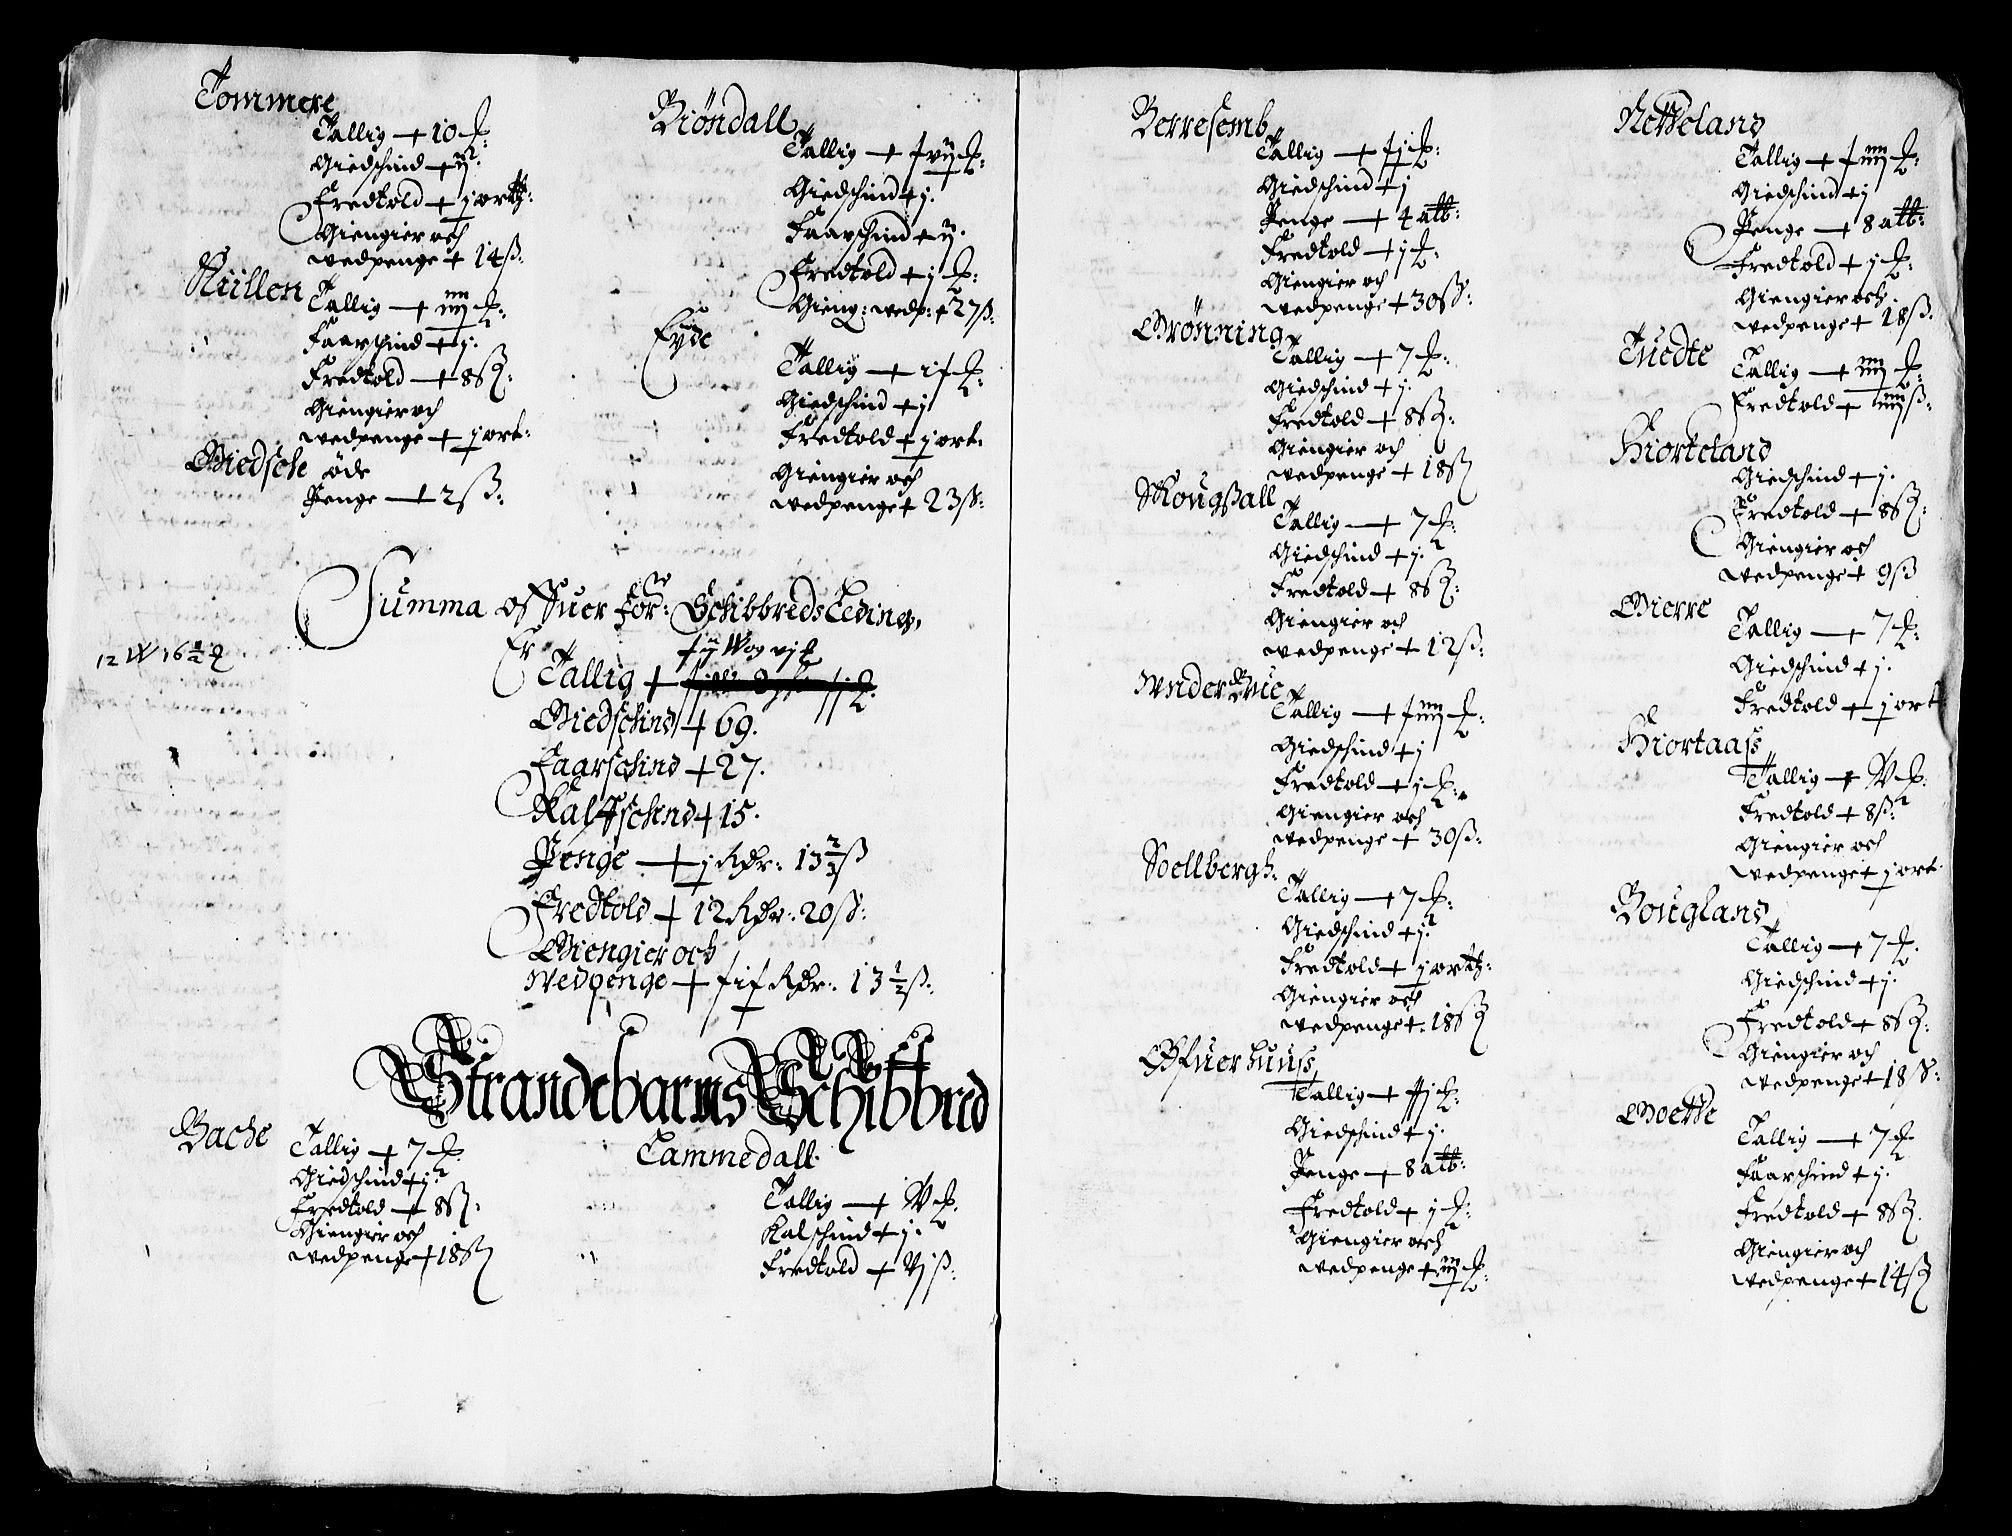 Tommere
Tallig + 10 ℔:
Giedschind + ij.
Fredtold + j ortt:
Giengier och
wedpenge + 14 ß:
Nüllen
Tallig + iiij ℔:
Faarschind + j.
Fredtold + 8 ß:
Giengier och
wedpenge + j ort:
Giedsche öde
Penge + 2 ß:
Biöndall
Tallig + xvij ℔:
Giedschind + j.
Faarschind + ij.
Fredtold + j ℔:
Gieng: wedp: + 27 ß:
Eyde
Tallig + ix ℔:
Giedschind + j
Fredtold + j ort.
Giengier och
wedpenge + 23 ß:
Summa offuer for: Schibbreds Leding,
Er
12 W 16 ½ ℔
xij W og vj ℔
Tallig +
Giedschind + 69.
Faarschind + 27.
Kalffschind + 15.
Penge + j Rdr: 13 ⅔ ß
Fredtold + 12 Rdr. 20 ß:
Giengier och
Wedpenge + xix Rdr. 13 ½ ß:
Strandebarms Schibbred
Bache
Tallig + 7 ℔:
Giedschind + j.
Fredtold + 8 ß:
Giengier och
wedpenge + 18 ß
Tammedall.
Tallig + V ℔.
Kalschind + j.
Fredtold + Vj ß:
Berresemb
Tallig + xj ℔:
Giedschind + j
Penge + 4 alb:
Fredtold + j ℔:
Giengier och
wedpenge + 30 ß:
Grönning
Tallig + 7 ℔:
Giedschind + j.
Fredtold + 8 ß:
Giengier och
wedpenge + 18 ß
Skougßall
Tallig + 7 ℔:
Giedschind + j.
Fredtold + 8 ß:
Giengier och
wedpenge + 12 ß:
Tallig + xiiij ℔:
Giedschind + j
Fredtold + j ℔:
Giengier och
wedpenge + 30 ß:
Soellbergh.
Tallig + 7 ℔:
Giedschind + j.
Fredtold + j ortt:
Giengier och
wedpenge + 18 ß
Offuerhuuss
Tallig + xxj ℔:
Giedschind + j.
Penge + 8 alb:
Fredtold + j ℔:
Giengier och
wedpenge + iiij ℔:
Netteland
Tallig + xiiij ℔:
Giedschind + j
Penge + 8 alb:
Fredtold + j ℔:
Giengier och.
wedpenge + 18 ß.
Tuedte
Tallig + iiij ℔:
Fredtold + iiij ß:
Hiorteland
Giedschind + j.
Fredtold + 8 ß:
Giengier och
wedpenge + 9 ß
Gierre
Tallig + 7 ℔:
Giedschind + j.
Fredtold + j ort
Hiortaass
Tallig + V ℔.
Fredtold + 8 ß:
Giengier och
wedpenge + j ort.
Bougland
Tallig + 7 ℔.
Giedschind + j.
Fredtold + 8 ß:
Giengier och
wedpenge + 18 ß:
Goette
Tallig + 7 ℔
Faarschind + j.
Fredtold + 8 ß.
Giengier och
wedpenge + 14 ß